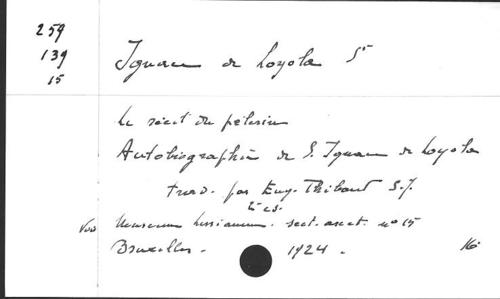 259
139
15
Ignace de Loyola St
Le récit du pèlerin
Autobiographie de S. Ignace de Loyola
trad. par Eug. Thibaut S.J.
2e éd.
Museum Lessianum. sect. ascet. n° 15
Bruxelles. 1924. 16°